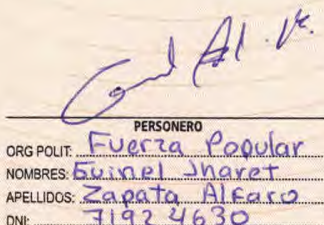 PERSONERO
ORG POLIT: Fuerza Popular
NOMBRES: Guinel Jharet
APELLIDOS: Zapata Alfaro
DNI: 71924630